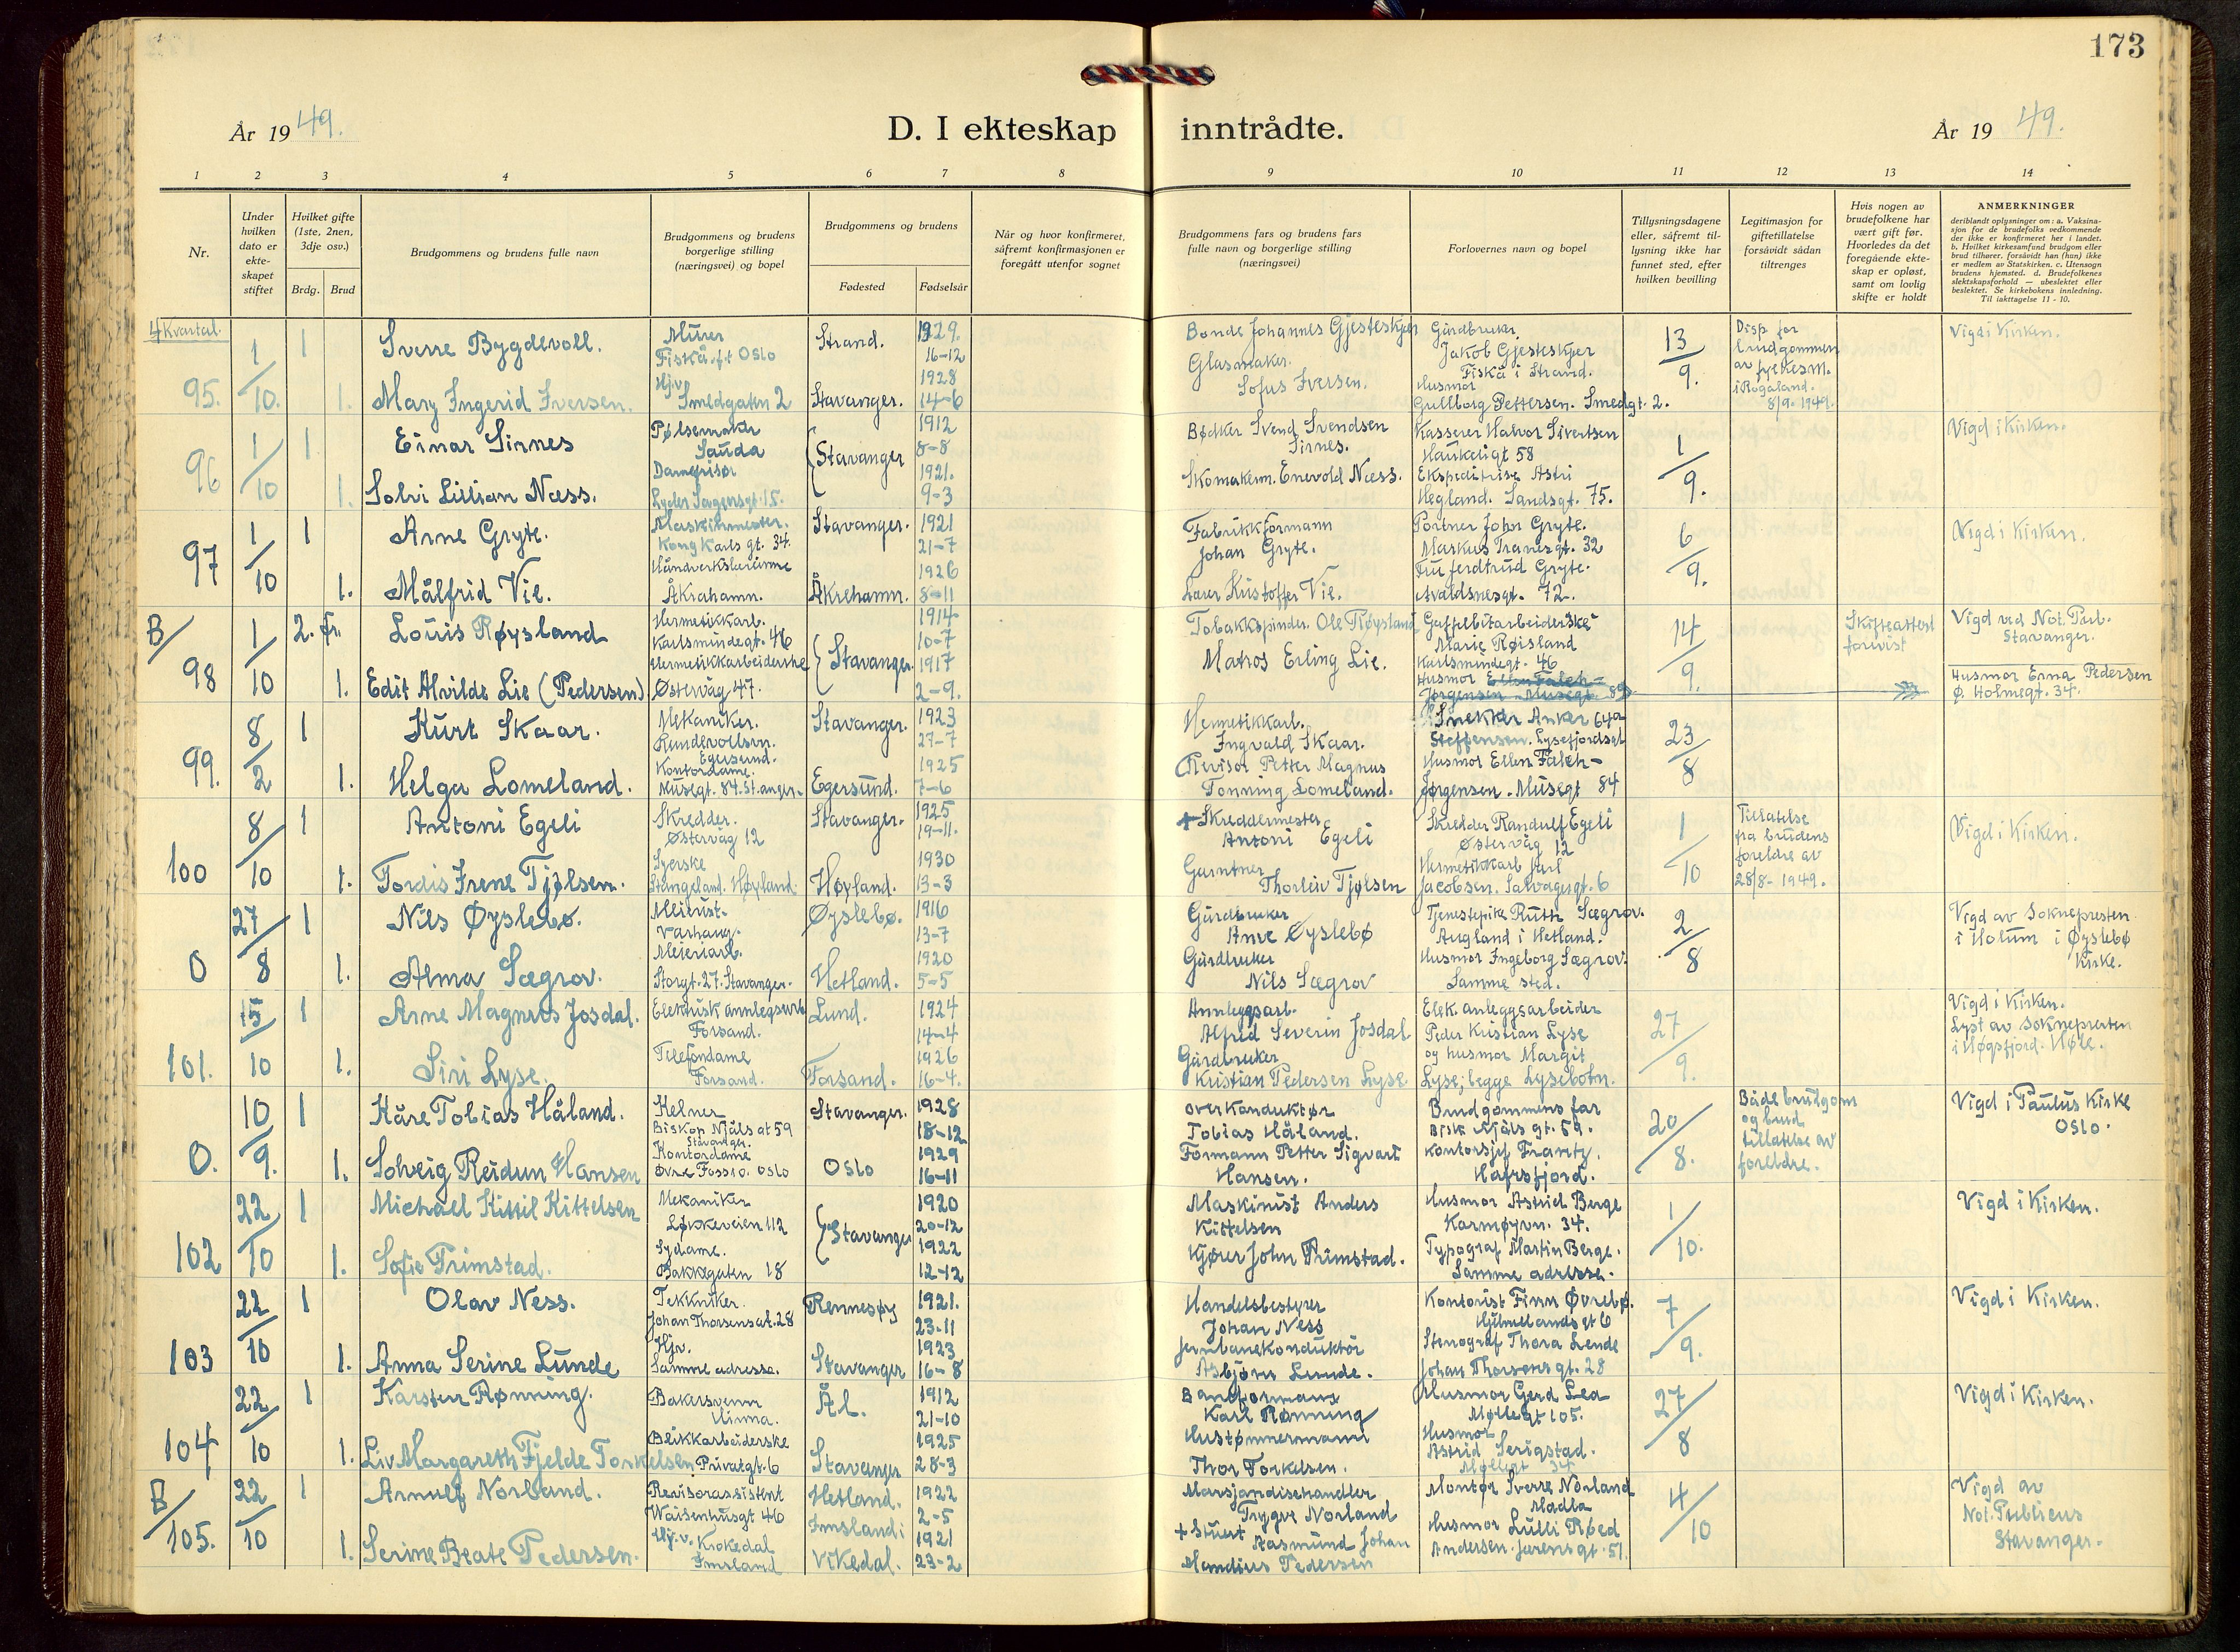 173
År 1949.
D. I ekteskap inntrådte.
År 1949.
1 2 3 4 5 6 7 8 9 10 11 12 13 14
Nr.
Under hvilken dato er ekte-skapet stiftet
Hvilket gifte (1ste, 2nen, 3dje osv.)
Brdg. Brud
Brudgommens og brudens fulle navn
Brudgommens og brudens borgerlige stilling (næringsvei) og bopel
Brudgommens og brudens
Fødested
Fødselsår
Når og hvor konfirmeret, såfremt konfirmasjonen er foregått utenfor sognet
Brudgommens fars og brudens fars fulle navn og borgerlige stilling (næringsvei)
Forlovernes navn og bopel
Tillysningsdagene eller, såfremt til-lysning ikke har funnet sted, efter hvilken bevilling
Legitimasjon for giftetillatelse forsåvidt sådan tiltrenges
Hvis nogen av brudefolkene har vært gift før. Hvorledes da det foregående ekte-skap er opløst, samt om lovlig skifte er holdt
ANMERKNINGER
deriblandt oplysninger om: a. Vaksina-sjon for de brudefolks vedkommende der ikke er konfirmeret her i landet. b. Hvilket kirkesamfund brudgom eller brud tilhører, forsåvidt han (hun) ikke er medlem av Statskirken. c. Utensogn brudens hjemsted. d. Brudefolkenes slektskapsforhold — ubeslektet eller beslektet. Se kirkebokens innledning. Til iakttagelse 11 - 10.
4 Kvartal.
95. 1/10. 1 Sverre Bygdevoll. Murer Fiskå, f.t Oslo Strand. 1929. 16-12 Bonde Johannes Gjesteskjer Gårdbruker Jakob Gjesteskjer Fiskå i Strand. 13/9. Disp. for brudgommen av fylkesm. i Rogaland. 8/9. 1949. Vigd i Kirken.
1. Mary Ingerid Iversen. Hj.v Smedgaten 2 Stavanger. 1928 14-6 Glasmaker. Sofus Iversen. Husmor Gullborg Pettersen. Smedgt. 2.
96 1/10 1 Einar Sirnes Pølsemaker Sauda Stavanger 1912 8-8 Bødker Svend Svendsen Sirnes. Kasserer Halvor Sivertsen Haukeligt 58 1/9. Vigd i Kirken.
1. Solvi Lillian Næss. Damefrisør Lyder Sagensgt. 15. 1921. 9-3 Skomakerm. Enevold Næss. Ekspeditrise Astri Hegland. Sandsgt. 75.
97 1/10 1 Arne Gryte. Maskinmester. Kong Karls gt. 34. Stavanger. 1921 21-7 Fabrikkformann Johan Gryte. Portner John Gryte. Markus Tranesgt. 32 6/9. Vigd i Kirken.
1. Målfrid Vie. Håndverkslærerinne Åkrahamn. Åkrehamn. 1926 8-11 Lærer Kristoffer Vie. Fru Jerdtrud Gryte. Avaldsnesgt. 72.
B/98 1/10 2. fr. Louis Røysland Hermetikkarb. Karlsmindegt. 46 Stavanger. 1914 10-7 Tobakkspinder. Ole Røysland Gaffelbitarbeiderske Marie Røisland Karlsmindegt. 46 14/9. Skifteattest forevist Vigd ved Not. Pub. Stavanger.
1. Edit Alvilde Lie (Pedersen). Hermetikkarbeiderske Østervåg 47. 1917 2-9. Matros Erling Lie. Husmor Ellen Falch-Jørgensen. Musegt. 89 Husmor Erna Pedersen Ø. Holmegt. 34.
99. 8/2 1 Kurt Skaar. Mekaniker. Rundevollsvn. Egersund. Stavanger. 1923 27-7 Hermetikkarb. Ingvald Skaar. Snekker Anker 64a Steffensen. Lysefjordsgt 23/8
1. Helga Lomeland. Kontordame. Musegt. 84. St.anger. Egersund. 1925 7-6 Revisor Petter Magnus Tonning Lomeland. Husmor Ellen Falch-Jørgensen. Musegt 84
100 8/10 1 Antoni Egeli Skredder. Østervåg 12 Stavanger. 1925 19-11. + Skreddermester Antoni Egeli Skredder Randulf Egeli Østervåg 12 1/10 Tillatelse fra brudens foreldre av 28/8- 1949. Vigd i Kirken.
1. Tordis Irene Tjølsen. Syerske Stangeland. Høyland. Høyland. 1930 13-3 Gartner Thorleiv Tjølsen Hermetikkarb Karl Jacobsen. Salvagergt. 6
0 27/8 1 Nils Øyslebø. Meierist. Varhaug. Øyslebø. 1916 13-7 Gårdbruker Anve Øyslebø Tjenestepike Ruth Sægrov. Augland i Hetland. 2/8 Vigd av Soknepresten i Holum i Øyslebø Kirke.
1. Alma Sægrov. Meieriarb. Storgt. 27. Stavanger. Hetland. 1920 5-5 Gårdbruker Nils Sægrov Husmor Ingeborg Sægrov. Samme sted.
101. 15/10 1 Arne Magnus Josdal. Elektrisk annlegsarb Forsand. Lund. 1924 14-4 Annleggsarb. Alfred Severin Josdal Elek. anleggsarbeider Peder Kristian Lyse 27/9. Vigd i Kirken. Lyst av Soknepresten i Høgsfjord. Høle.
1. Siri Lyse. Telefondame Forsand. Forsand. 1926 16-4. Gårdbruker Kristian Pedersen Lyse. og husmor Margit Lyse, begge Lysebotn.
0. 10/9. 1 Kåre Tobias Håland. Kelner Biskop Njåls gt 59 Stavanger. Stavanger. 1928 18-12 Overkonduktør Tobias Håland. Brudgommens far Bisk. Njåls gt. 59. 20/8. Både brudgom og brud tillatelse av foreldre. Vigd i Paulus Kirke Oslo.
1. Solveig Reidun Hansen Kontordame Øvre Foss 10. Oslo Oslo 1929 16-11 Formann Petter Sigvart Hansen. Kontorsjef Frantz. Hafrsfjord.
102 22/10 1 Michael Kittil Kittelsen Mekaniker Løkkeveien 112 Stavanger 1920 20-12 Maskinist Anders Kittelsen Husmor Astrid Berge Karmøyvn. 34. 1/10. Vigd i Kirken.
1. Sofie Trimstad. Sydame. Bakkegaten 18 1922 12-12 Kjører John Trimstad. Typograf Martin Berge. Samme adresse.
103 22/10 1 Olav Ness. Tekkniker. Johan Thorsensgt. 28 Rennesøy 1921. 23-11 Handelsbestyrer Johan Ness Kontorist Finn Øvrebø. Hjelmelandsgt 6 7/9. Vigd i Kirken.
1. Anna Serine Lunde Hjv. Samme adresse. Stavanger 1923 16-8 Jernbanekonduktør Asbjørn Lunde. Stenograf Thora Lende Johan Thorsens gt. 28
104 22/10 1 Karsten Rønning. Bakersvenn Hinna. Ål. 1912 21-10 Baneformann Karl Rønning Husmor Gerd Lea Møllegt 105. 27/8 Vigd i Kirken.
1. Liv Margareth Fjelde Torkelsen Blikkarbeiderske Privatgt. 6 Stavanger 1925 28-3 Hustømmermann Thor Torkelsen. Husmor Astrid Serigstad. Møllegt 34
B/105. 22/10 1 Arnulf Norland. Revisorassistent Waisenhusgt 46 Hetland. 1922 2-5 Marsjandisehandler Trygve Norland Montør Sverre Norland Madla 4/10 Vigd av Not. Publicus Stavanger.
1. Serine Beate Pedersen. Hj.v. Krokedal Imsland Imsland i Vikedal. 1921 23-2 + Stuert Aasmund Johan Mandius Pedersen Husmor Lulli Røed Andersen. Jærens gt. 51.